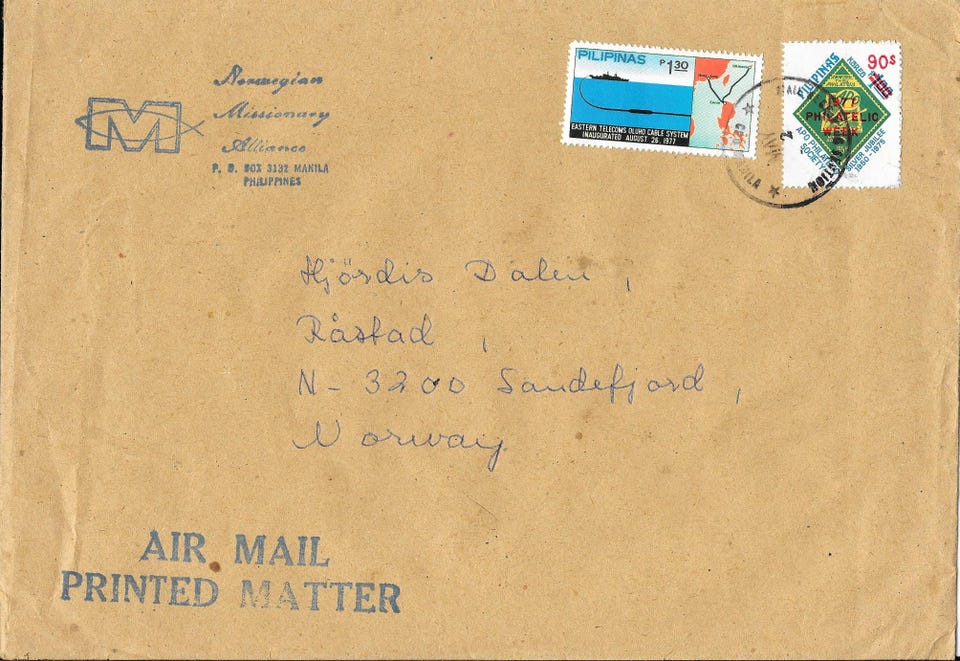 Norwegian
Missionary
Alliance
P. O. BOX 3132 MANILA
PHILIPPINES
M
PILIPINAS
P1.30
EASTERN TELECOMS OLUHO CABLE SYSTEM
INAUGURATED AUGUST 26, 1977
PILIPINAS
90s
PHILATELIC
WEEK
APO PHILATELIC
SOCIETY
SILVER JUBILEE
1950-1975
Hjördis Dalen,
Råstad,
N-3200 Sandefjord,
Norway
AIR MAIL
PRINTED MATTER